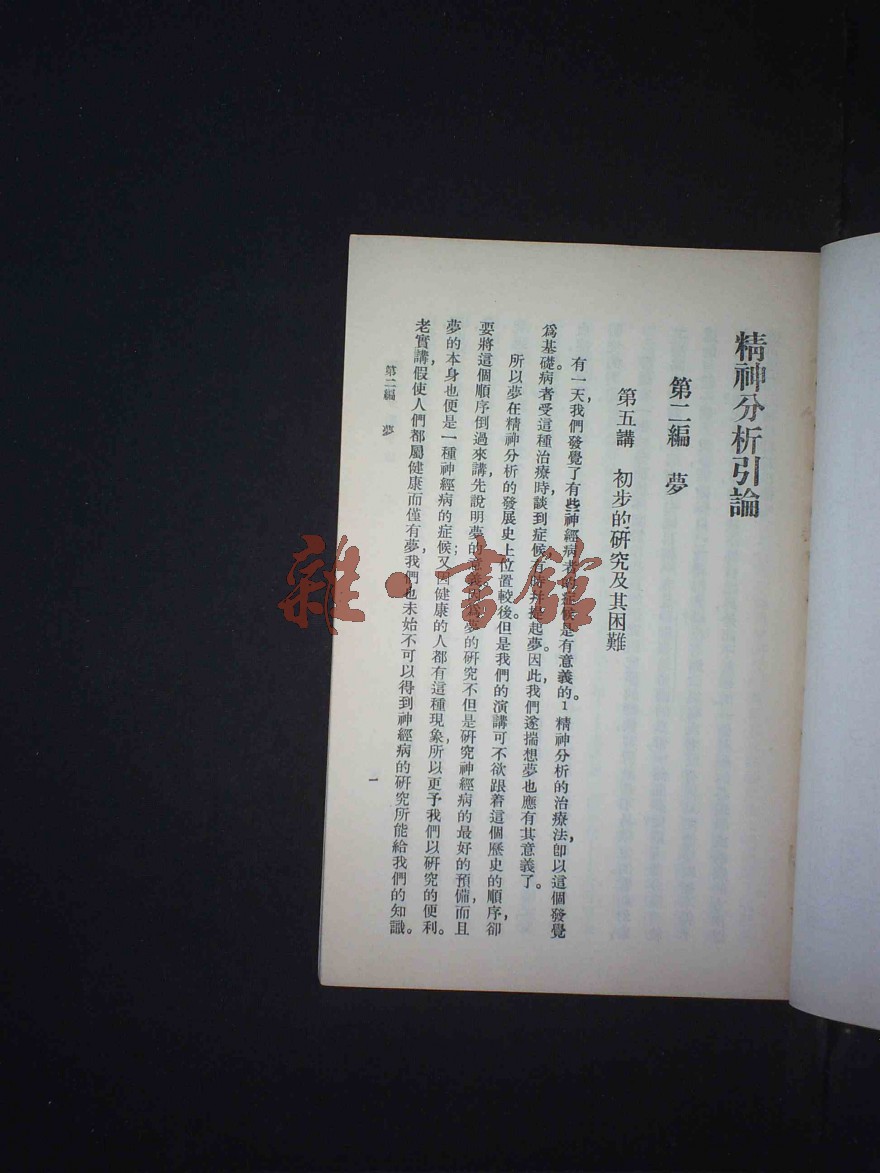 精神分析引論
第二編 夢
第五講 初步的研究及其困難
有一天,我們發覺了有些神經病者的症候是有意義的。1 精神分析的治療法,卽以這個發覺
爲基礎。病者受這種治療時,談到症候,有時并提起夢。因此,我們遂揣想夢也應有其意義了。
所以夢在精神分析的發展史上位置較後。但是我們的演講可不欲跟着這個歷史的順序,卻
要將這個順序倒過來講,先說明夢的意義,因爲夢的研究不但是研究神經病的最好的預備,而且
夢的本身也便是一種神經病的症候;又因健康的人都有這種現象,所以更予我們以研究的便利。
老實講,假使人們都屬健康而僅有夢,我們也未始不可以得到神經病的研究所能給我們的知識。
第二編 夢
一
雜·書館